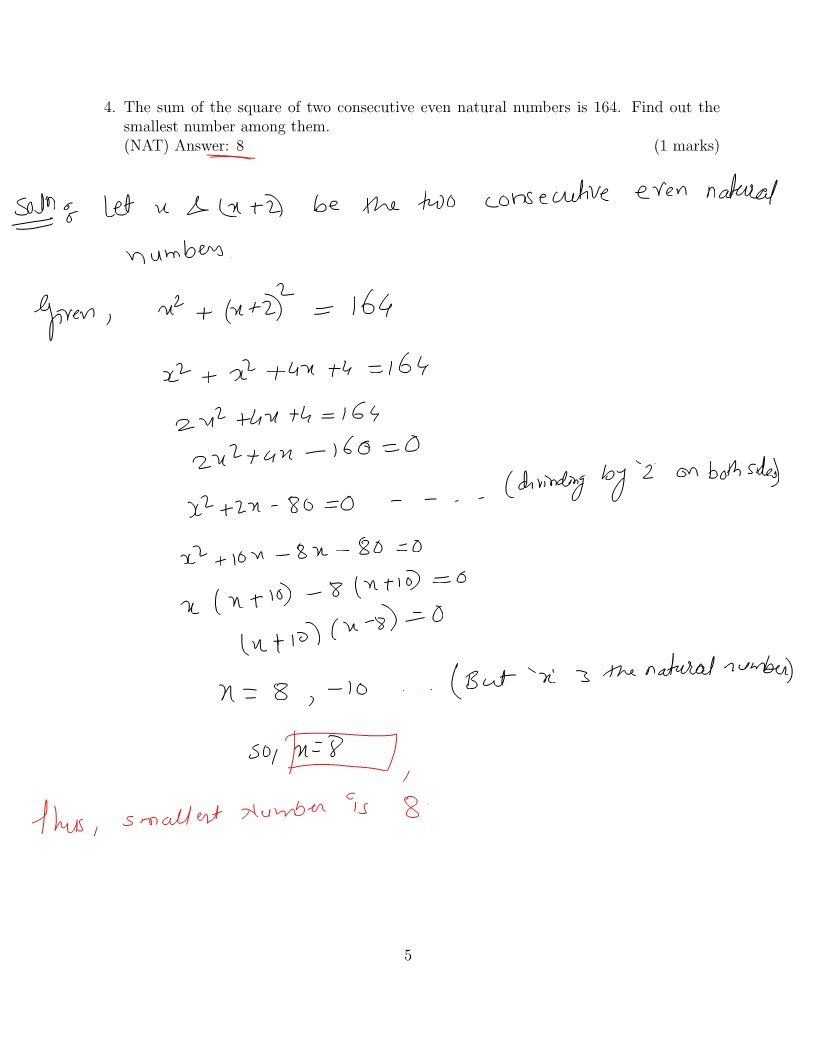 4. The sum of the square of two consecutive even natural numbers is 164. Find out the
smallest number among them.
(NAT) Answer: 8 (1 marks)
Soln: Let x & (x+2) be the two consecutive even natural
numbers.
Given, x² + (x+2)² = 164
x² + x² + 4x + 4 = 164
2x² + 4x + 4 = 164
2x² + 4x - 160 = 0
x² + 2x - 80 = 0 - - . . - (dividing by '2' on both sides)
x² + 10x - 8x - 80 = 0
x (x+10) - 8 (x+10) = 0
(x+10) (x-8) = 0
x = 8, -10 ... (But 'x' is the natural number)
so, x=8,
Thus, smallest number is 8.
5